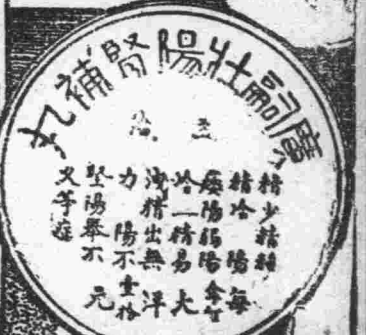 廣嗣壯陽腎補丸
主治
精少精
精冷 陽
痿陽弱陽
冷一精易
洩精出無
力 陽不
堅陽舉不
久等症
每盒大洋壹拾元